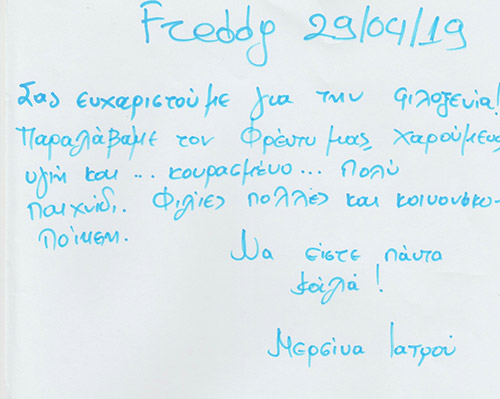 Freddy 29/04/19
Σας ευχαριστούμε για την φιλοξενία!
Παραλάβαμε τον Φρέντυ μας, χαρούμενο,
υγιή και... κουρασμένο... Πολύ
παιχνίδι. Φιλίες πολλές και κοινωνικο-
ποίηση.
Να είστε πάντα
καλά!
Μερσίνα Ιατρού